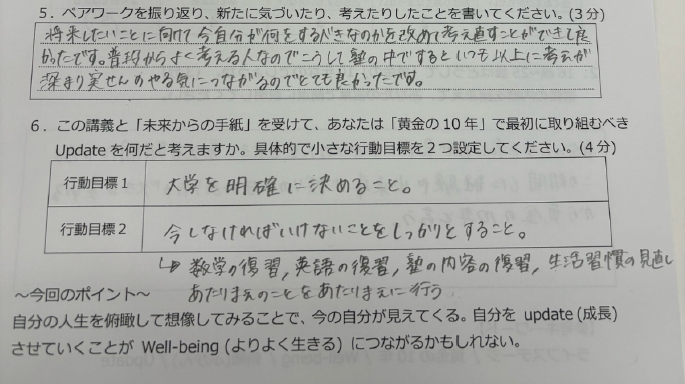 5．ペアワークを振り返り、新たに気づいたり、考えたりしたことを書いてください。(3分)
将来したいことに向けて今自分が何をするべきなのかを改めて考え直すことができて良
かったです。普段からよく考える人なのでこうして塾の中ですると いつも以上に考えが
深まり実せんのやる気につながるのでとても良かったです。
6．この講義と「未来からの手紙」を受けて、あなたは「黄金の10年」で最初に取り組むべき
Update を何だと考えますか。具体的で小さな行動目標を2つ設定してください。(4分)
行動目標1 大学を明確に決めること。
行動目標2 今しなければいけないことをしっかりとすること。
↳ 数学の復習, 英語の復習, 塾の内容の復習, 生活習慣の見直し
～今回のポイント～ あたりまえのことをあたりまえに行う
自分の人生を俯瞰して想像してみることで、今の自分が見えてくる。自分を update (成長)
させていくことが Well-being (よりよく生きる) につながるかもしれない。